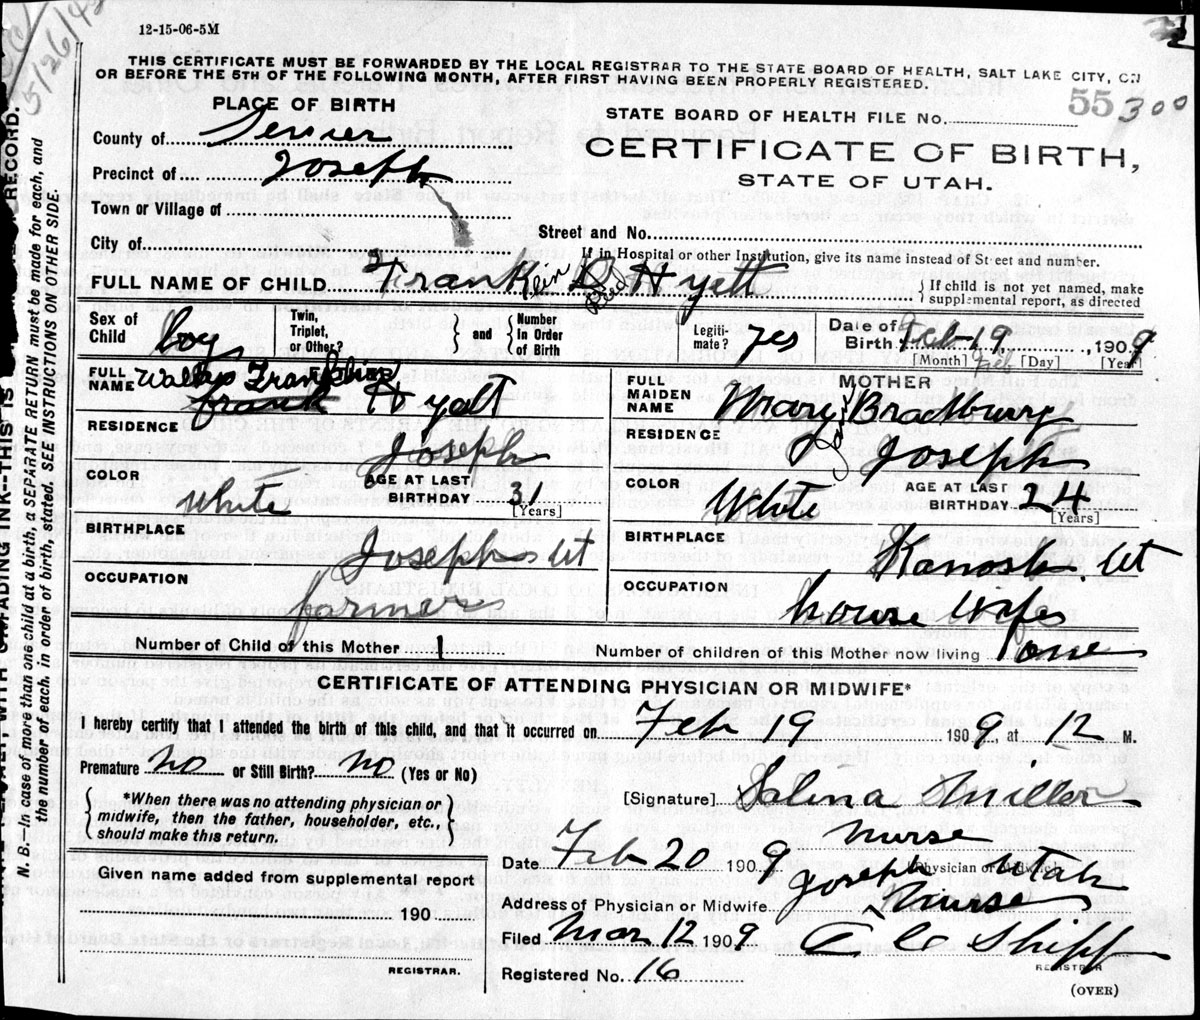 5/26/42
12-15-06-5M
THIS CERTIFICATE MUST BE FORWARDED BY THE LOCAL REGISTRAR TO THE STATE BOARD OF HEALTH, SALT LAKE CITY, ON
OR BEFORE THE 5TH OF THE FOLLOWING MONTH, AFTER FIRST HAVING BEEN PROPERLY REGISTERED.
PLACE OF BIRTH
County of Sevier
Precinct of Joseph
Town or Village of
City of
STATE BOARD OF HEALTH FILE No. 55300
CERTIFICATE OF BIRTH,
STATE OF UTAH.
Street and No.
If in Hospital or other Institution, give its name instead of Street and number.
FULL NAME OF CHILD Franklin Reed Hyatt
If child is not yet named, make
supplemental report, as directed
Sex of Child boy
Twin, Triplet, or Other?
and
Number In Order of Birth
Legiti-mate? yes
Date of Birth Feb 19, 1909
[Month] Feb [Day] [Year]
FATHER
FULL NAME Frank Hyatt
RESIDENCE Joseph
COLOR White
AGE AT LAST BIRTHDAY 31
[Years]
BIRTHPLACE Joseph Ut
OCCUPATION farmer
MOTHER
FULL MAIDEN NAME Mary Bradbury
RESIDENCE Joseph
COLOR White
AGE AT LAST BIRTHDAY 24
[Years]
BIRTHPLACE Kanosh. Ut
OCCUPATION house wife
Number of Child of this Mother 1
Number of children of this Mother now living one
CERTIFICATE OF ATTENDING PHYSICIAN OR MIDWIFE*
I hereby certify that I attended the birth of this child, and that it occurred on Feb 19 1909, at 12 M.
Premature no or Still Birth? no (Yes or No)
*When there was no attending physician or
midwife, then the father, householder, etc.,
should make this return.
[Signature] Salina Miller
nurse
Physician or Midwife
Date Feb 20 1909
Joseph Utah
Address of Physician or Midwife Nurse
Filed Mar 12 1909 Shipp
REGISTRAR
Registered No. 16
(OVER)
Given name added from supplemental report
190
REGISTRAR.
N. B.—In case of more than one child at a birth, a SEPARATE RETURN must be made for each, and
the number of each, in order of birth, stated. SEE INSTRUCTIONS ON OTHER SIDE.
WITH UNFADING INK--THIS IS
RECORD.